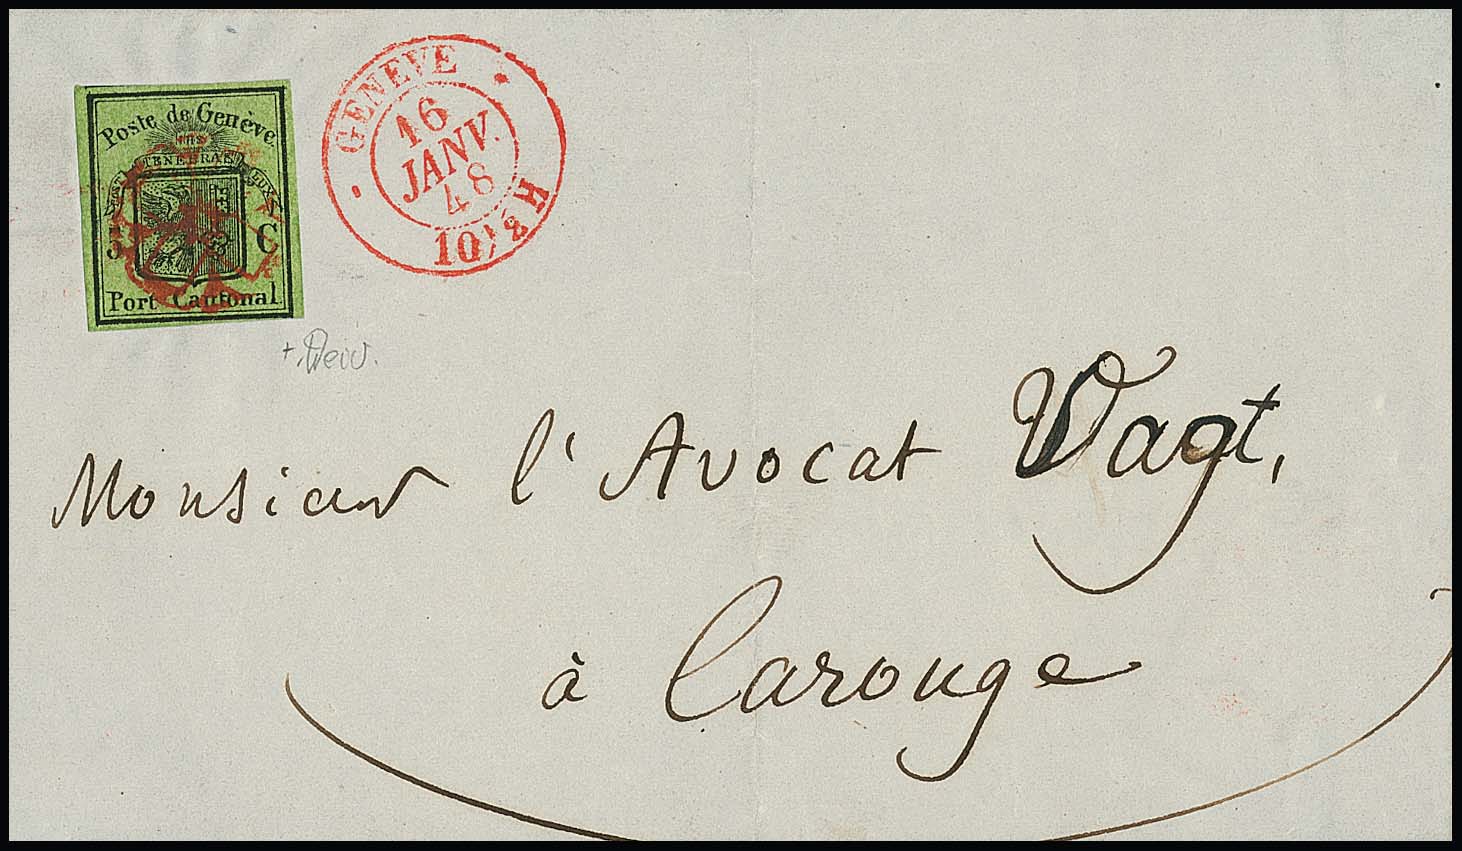 Poste de Genève.
IHS
POST TENEBRAS LUX
5 C
Port Cantonal.
GENEVE
16
JANV.
48
10 1/2 H
Monsieur l'Avocat Vagt,
à Carouge